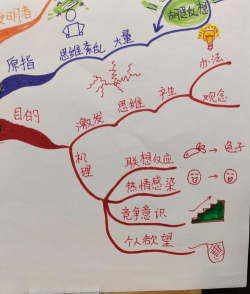 发明者
胡思乱想
原指 思维紊乱 大量
办法
目的 激发 思维 产生
观念
机理
联想反应 → 兔子
热情感染 →
竞争意识
个人欲望